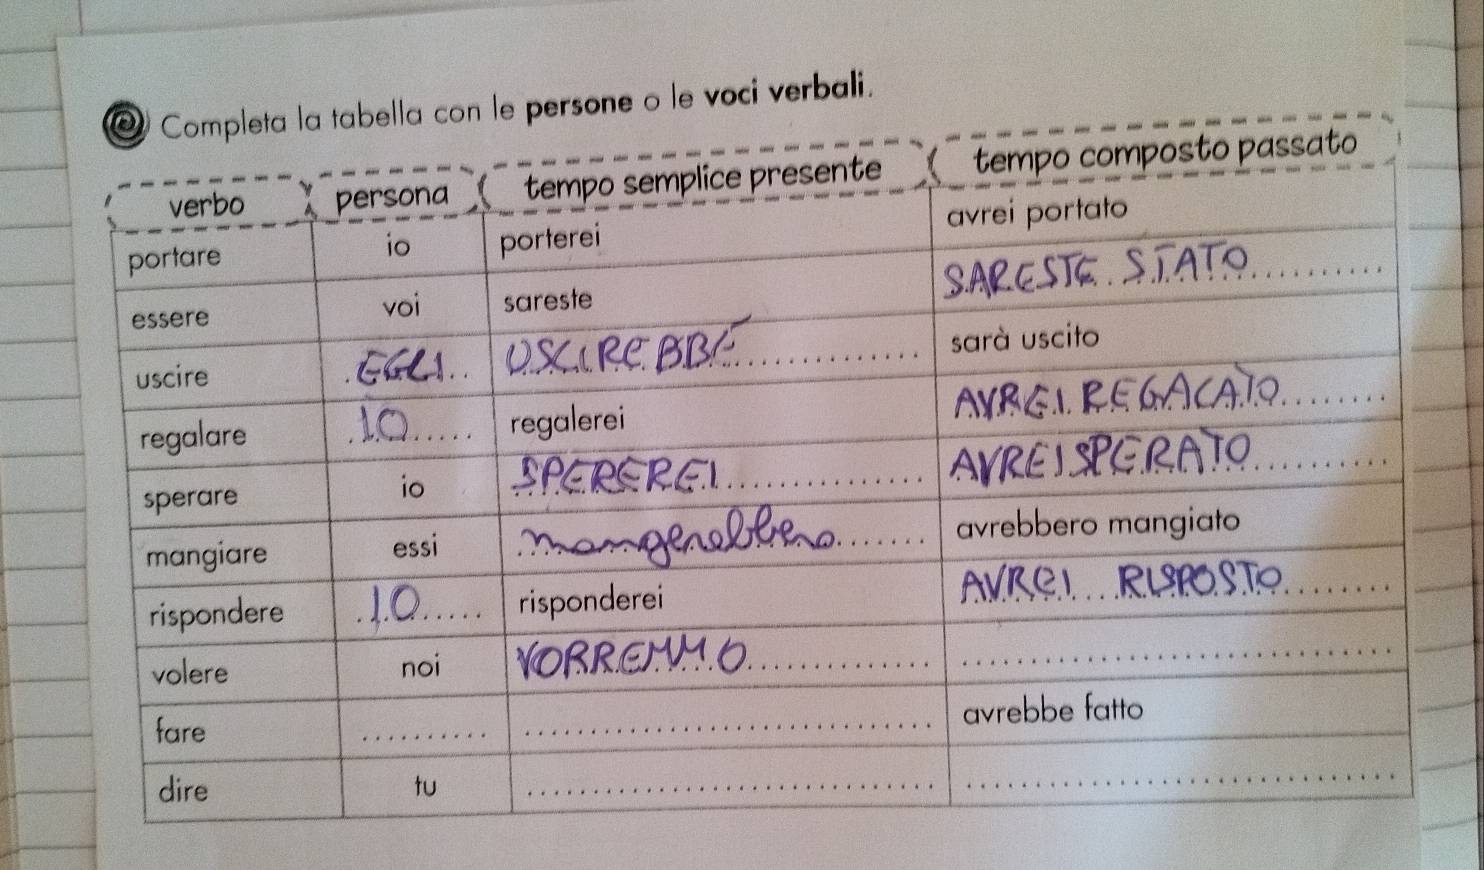 Completa la tabella con le persone o le voci verbali.
verbo persona tempo semplice presente tempo composto passato
portare io porterei avrei portato
essere voi sareste SARESTE STATO
uscire EGLI USCIREBBE sarà uscito
regalare IO regalerei AVREI REGALATO
sperare io SPEREREI AVREI SPERATO
mangiare essi mangerebbero avrebbero mangiato
rispondere IO risponderei AVREI RISPOSTO
volere noi VORREMMO
fare avrebbe fatto
dire tu